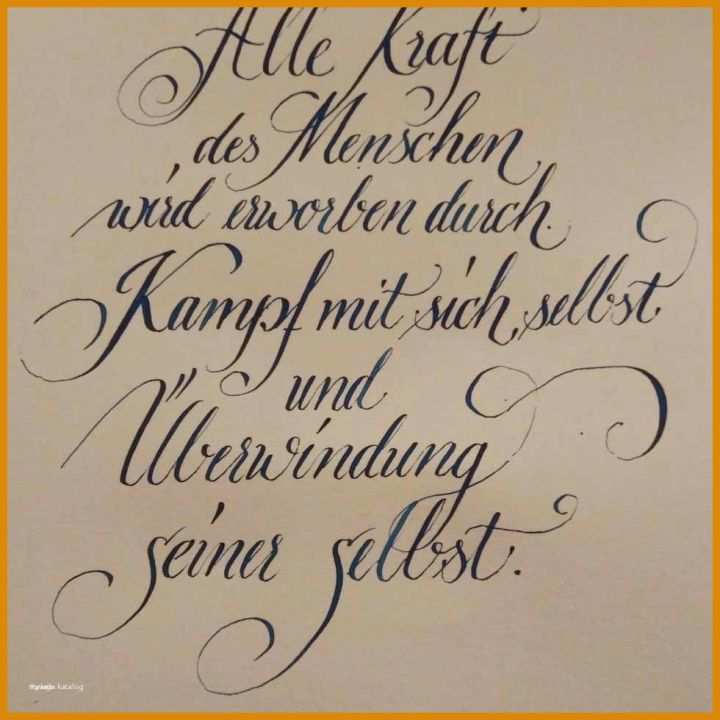 Alle Kraft
des Menschen
wird erworben durch
Kampf mit sich selbst
und
Überwindung
seiner selbst.
katalog